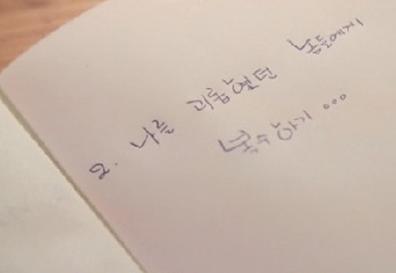 2. 나를 괴롭혔던 놈들에게
복수하기...